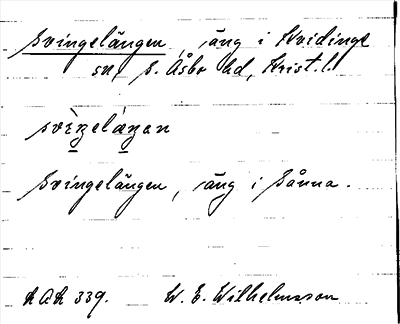 Svingelängen, äng i Kvidinge
sn, S. Åsbo hd, Krist. l.
svìŋelàŋən
Svingelängen, äng i Sånna.
W. E. Wilhelmsson